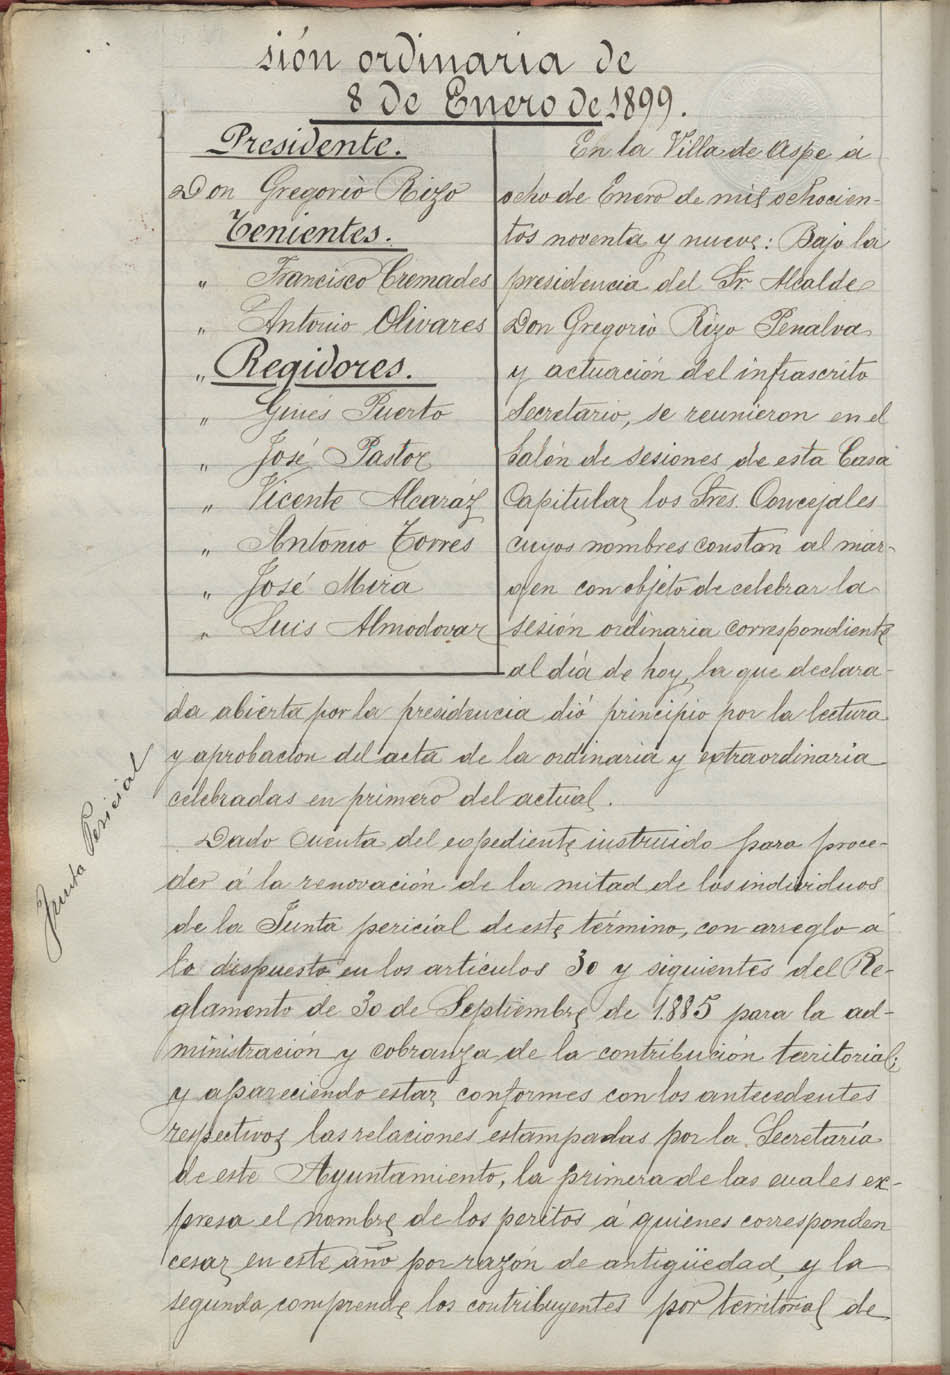 sión ordinaria de
8 de Enero de 1899.
Presidente.
Don Gregorio Rizo
Tenientes.
" Francisco Cremades
" Antonio Olivares
" Regidores.
" Ginés Puerto
" José Pastor
" Vicente Alcaráz
" Antonio Torres
" José Mira
" Luis Almodovar
En la Villa de Aspe á
ocho de Enero de mil ochocien-
tos noventa y nueve: Bajo la
presidencia del Sr. Alcalde
Don Gregorio Rizo Penalva
y actuación del infrascrito
Secretario, se reunieron en el
Salón de sesiones de esta Casa
Capitular los Sres. Concejales
cuyos nombres constan al már-
gen con objeto de celebrar la
sesión ordinaria correspondiente
al día de hoy, la que declara-
da abierta por la presidencia dió principio por la lectura
y aprobacion del acta de la ordinaria y extraordinaria
celebradas en primero del actual.
Junta Pericial
Dado cuenta del expediente instruido para proce-
der á la renovación de la mitad de los individuos
de la Junta pericial de este término, con arreglo á
lo dispuesto en los artículos 30 y siguientes del Re-
glamento de 30 de Septiembre de 1.885 para la ad-
ministración y cobranza de la contribución territorial;
y apareciendo estar conformes con los antecedentes
respectivos las relaciones estampadas por la Secretaría
de este Ayuntamiento, la primera de las cuales ex-
presa el nombre de los peritos á quienes corresponden
cesar en este año por razón de antigüedad, y la
segunda comprende los contribuyentes por territorial de